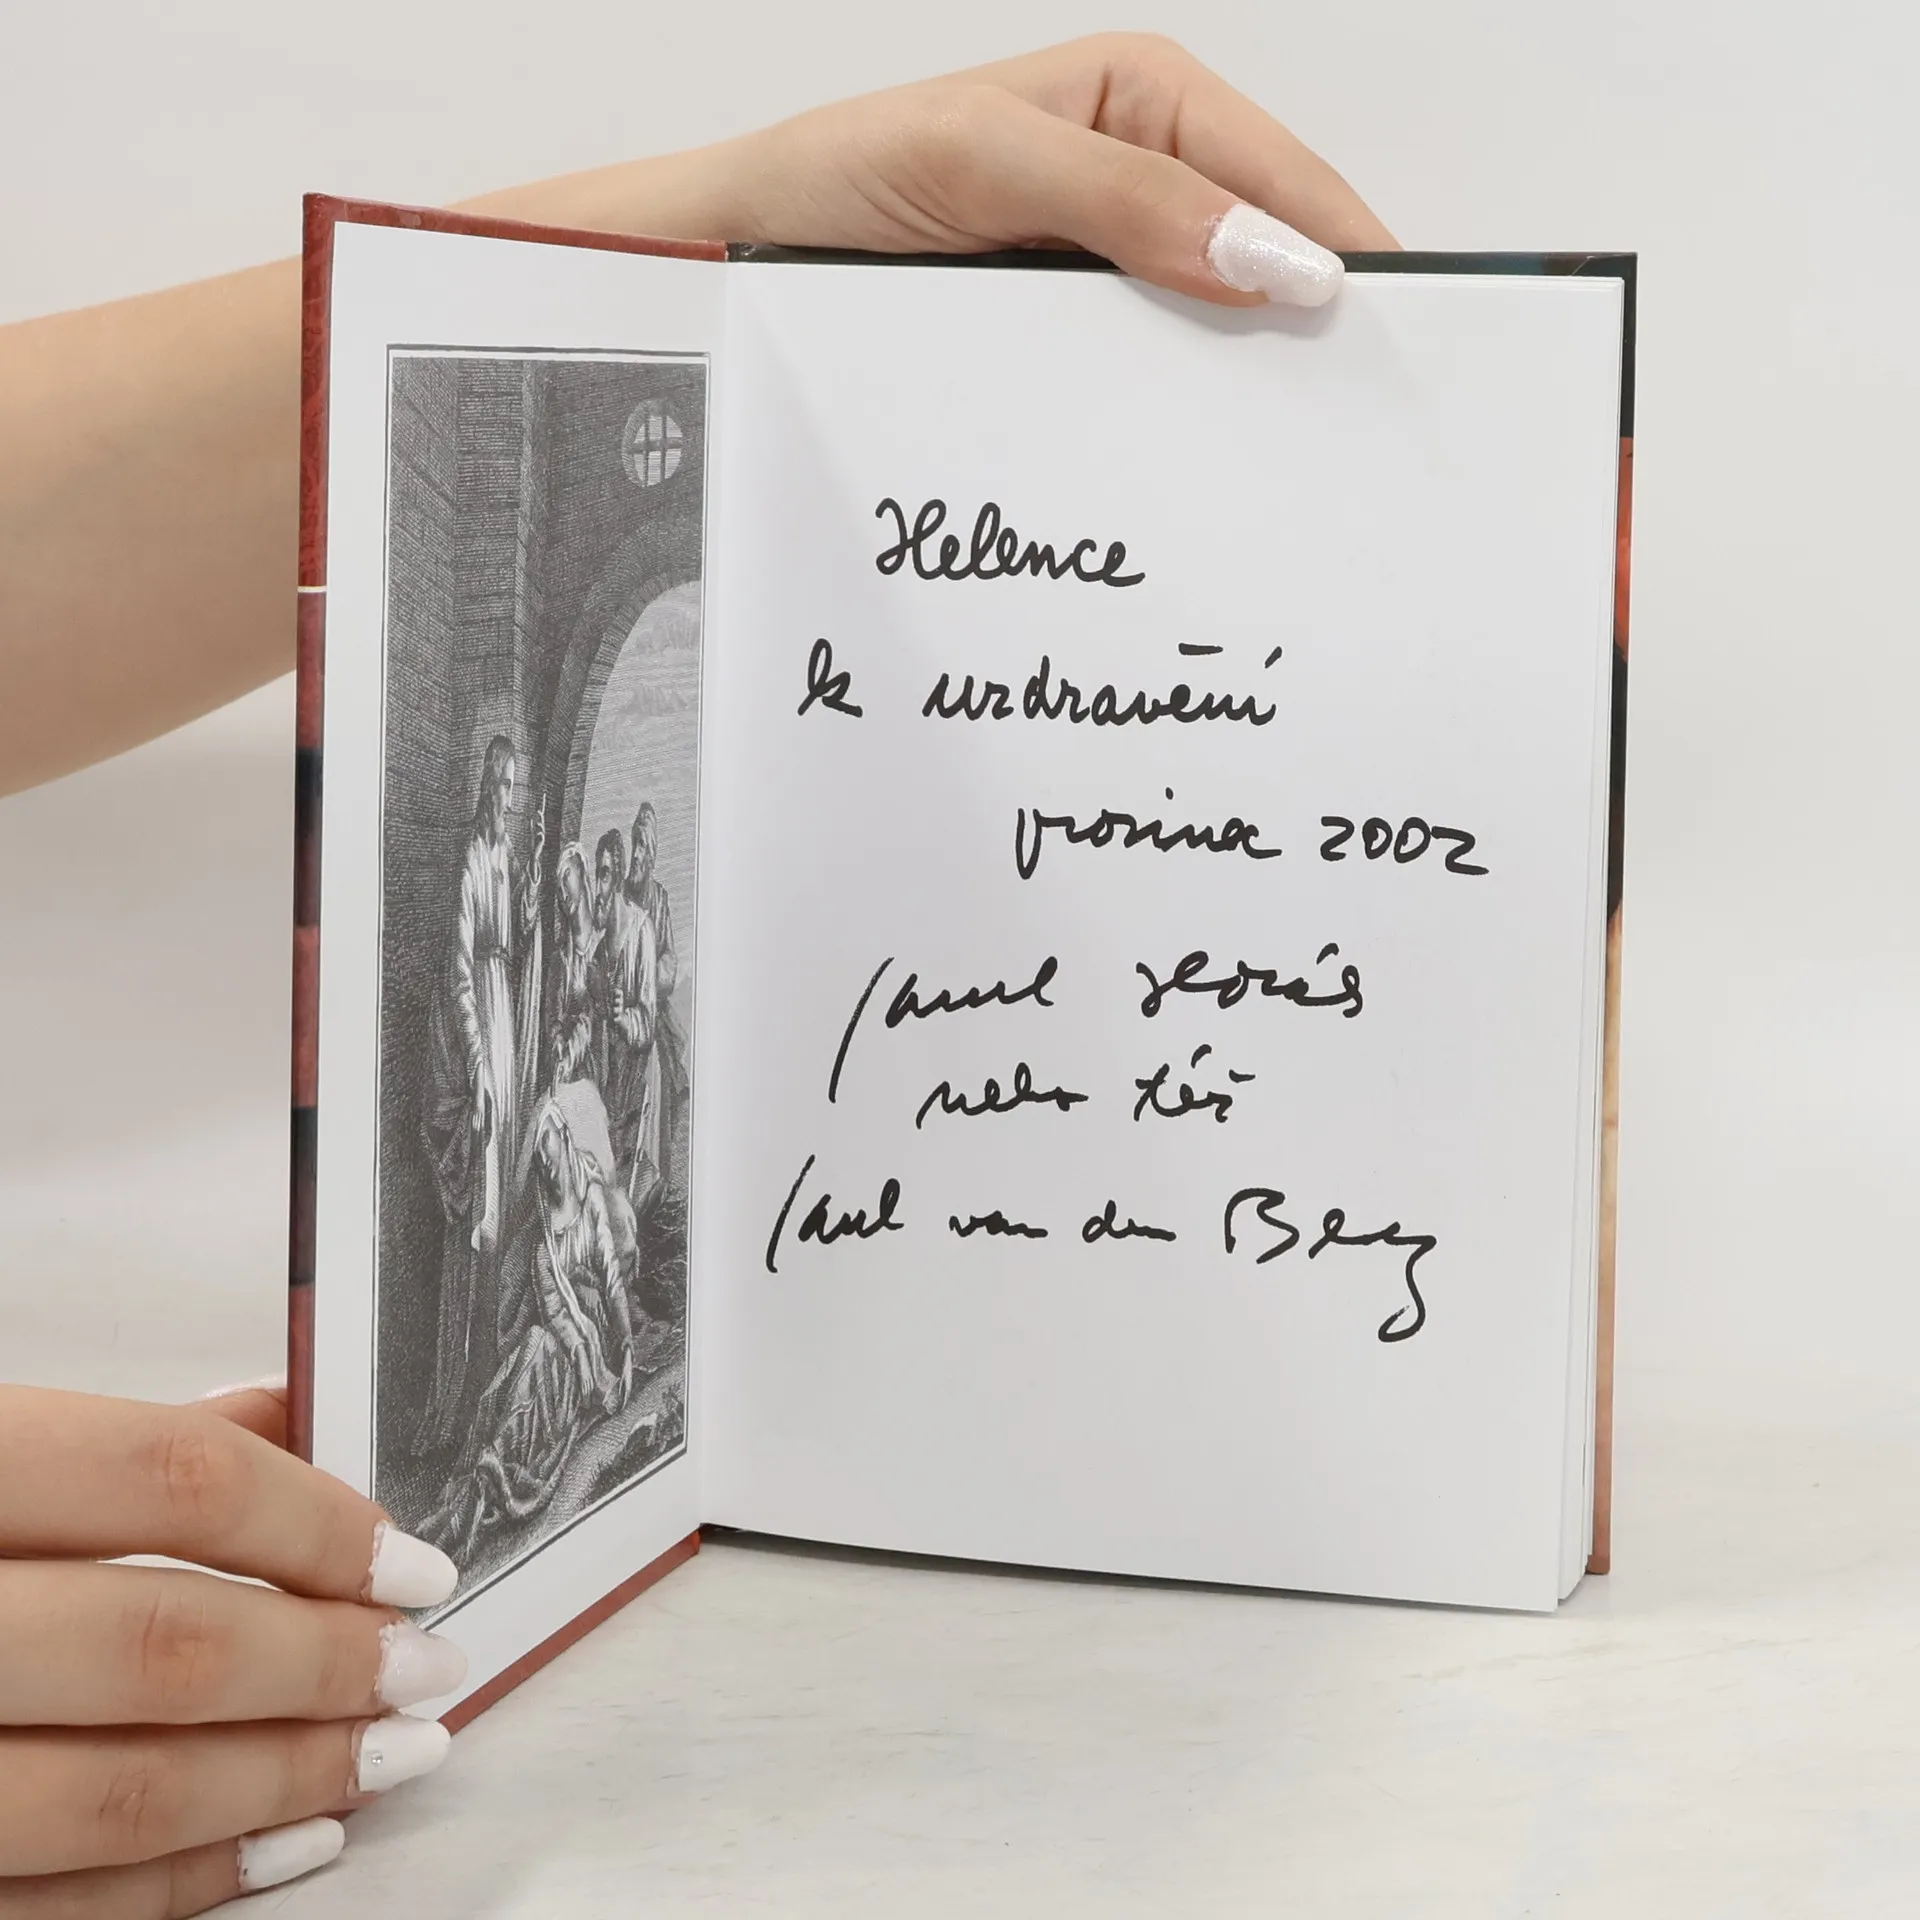 Helence
k uzdravení
prosinec 2002
Pavel
nebo též
Paul van den Berg